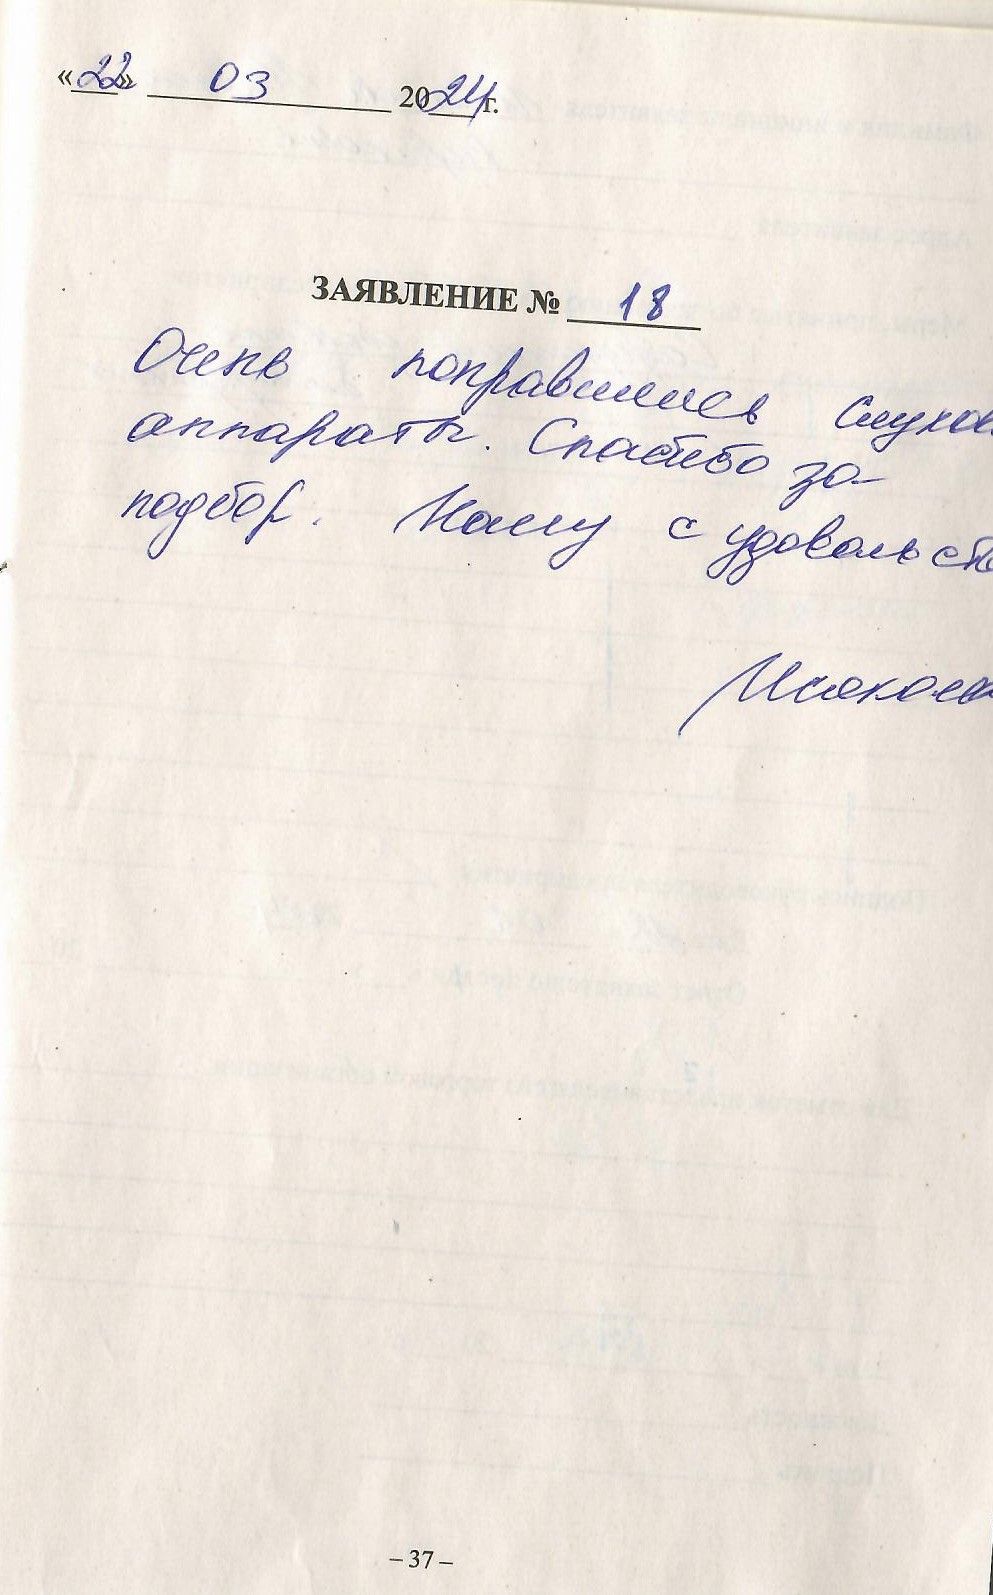 «22» 03 2024 г.
ЗАЯВЛЕНИЕ № 18
Очень понравились слухов
аппараты. Спасибо за
подбор. Ношу с удовольств
– 37 –